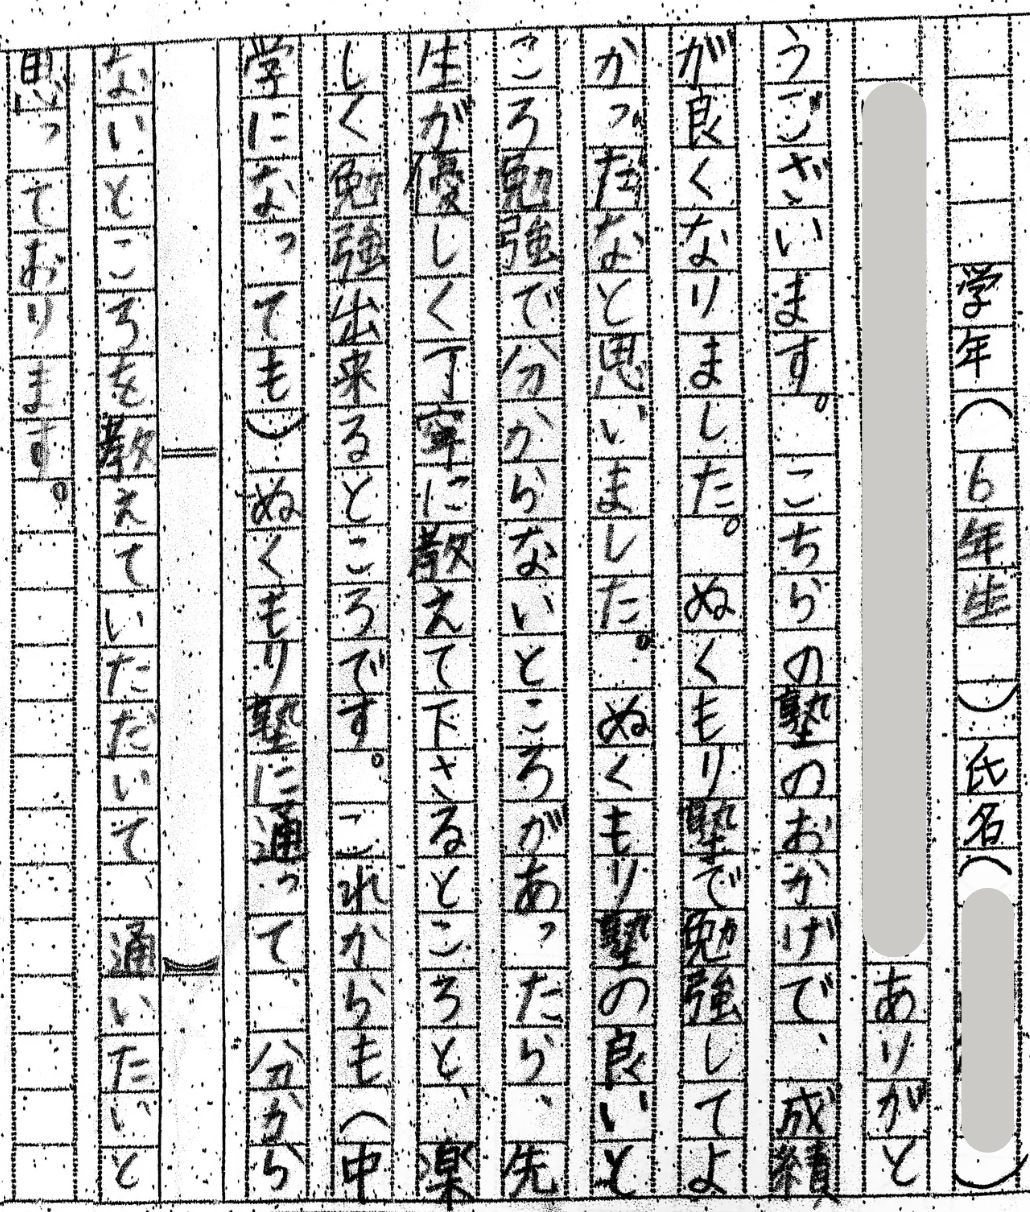 学年（6年生）氏名（　）
ありがと
うございます。こちらの塾のおかげで、成績
が良くなりました。ぬくもり塾で勉強してよ
かっだなと思いました。ぬくもり塾の良いと
ころ勉強で分からないところがあったら、先
生が優しく丁寧に教えて下さるところと、楽
しく勉強出来るところです。これからも（中
学になっても）ぬくもり塾に通って、分から
ないところを教えていただいて、通いたいと
思っております。